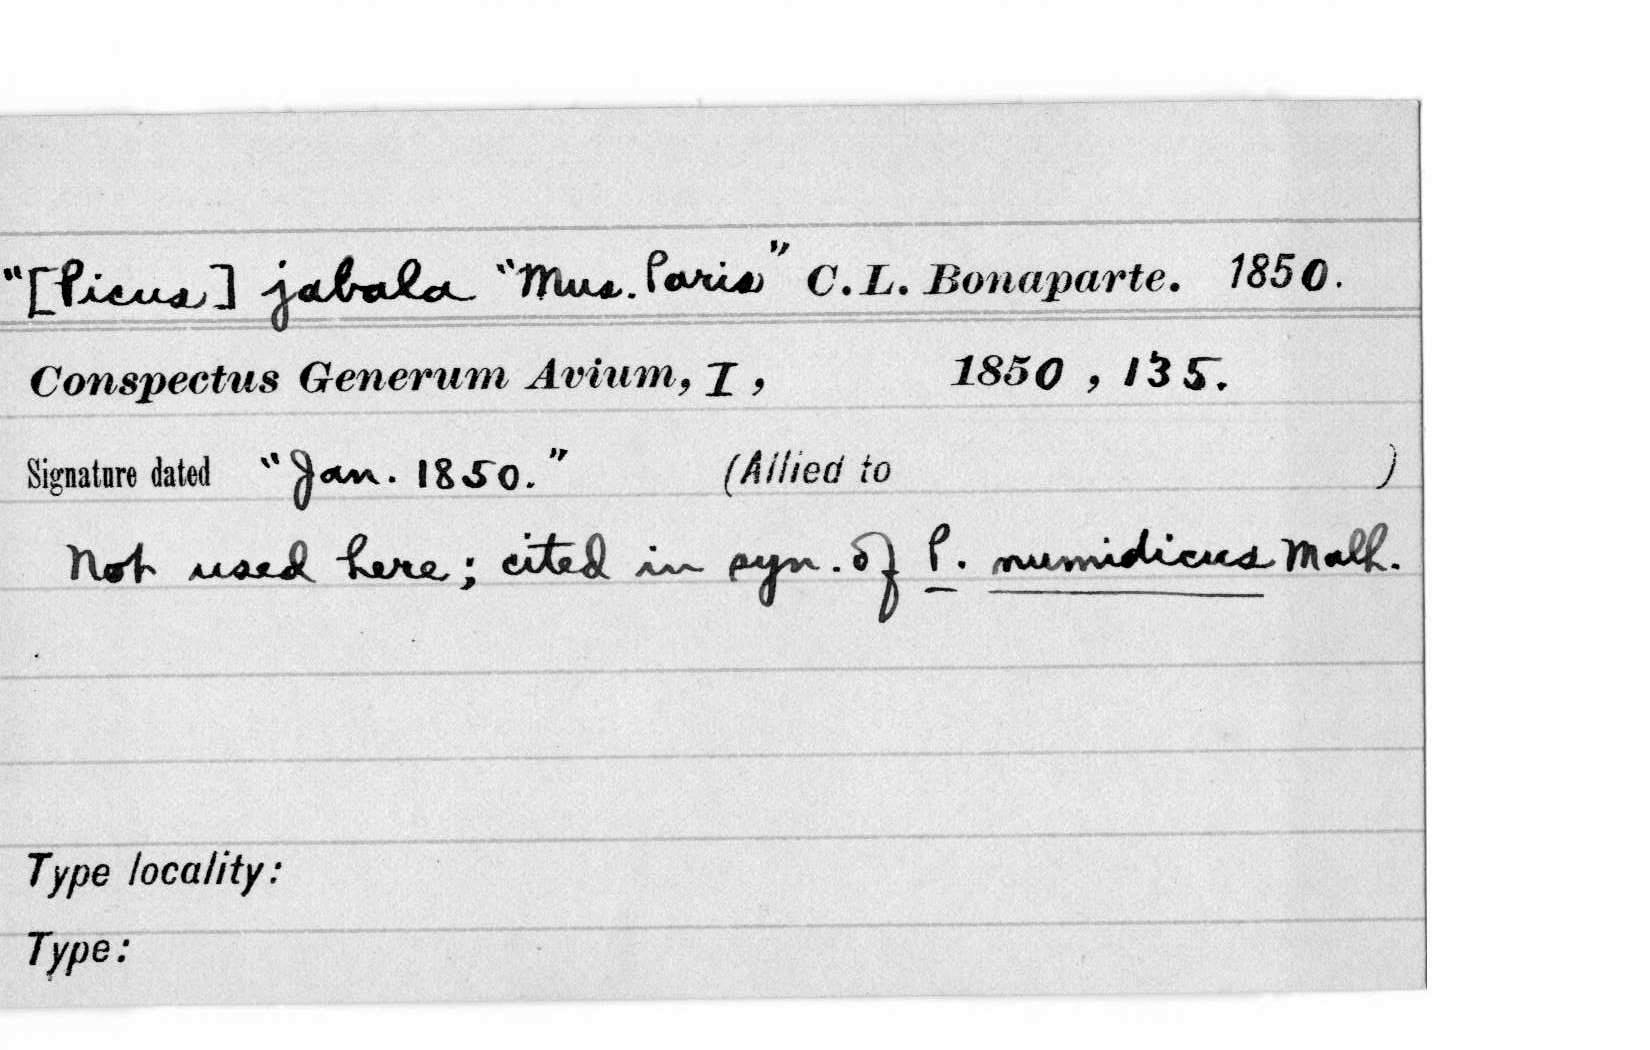 "[Picus] jabala "Mus. Paris" C. L. Bonaparte. 1850.
Conspectus Generum Avium, I, 1850, 135.
Signature dated "Jan. 1850." (Allied to )
Not used here; cited in syn. of P. numidicus Malh.
Type locality:
Type: